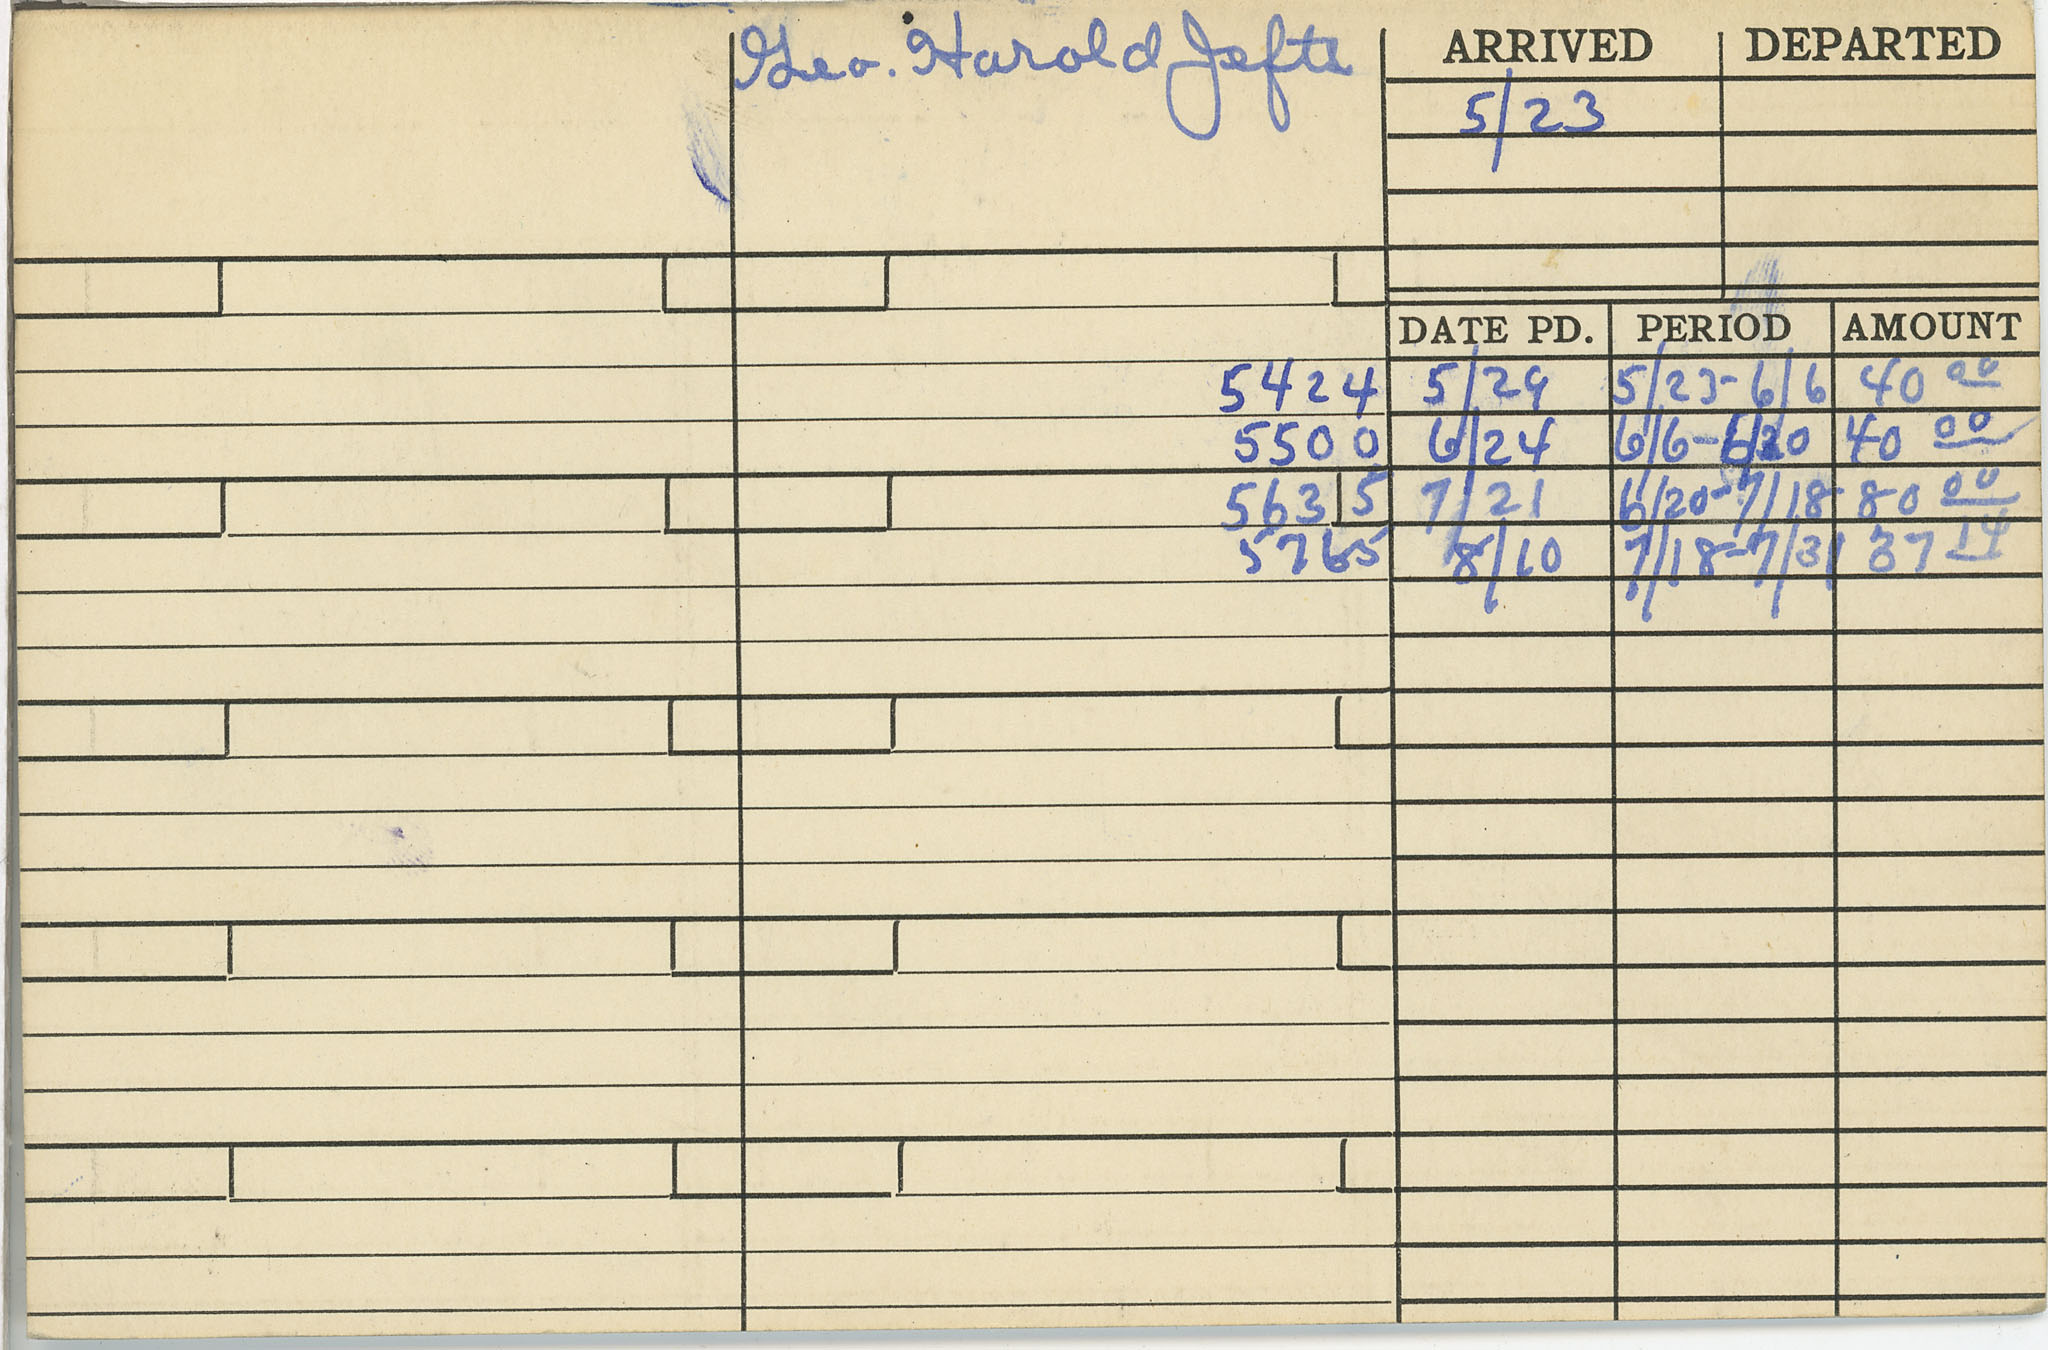 Geo. Harold Jefts
ARRIVED DEPARTED
5/23
DATE PD. PERIOD AMOUNT
5424 5/29 5/23-6/6 40 00
5500 6/24 6/6-6/20 40 00
5635 7/21 6/20-7/18 80 00
5765 8/10 7/18-7/31 37 14